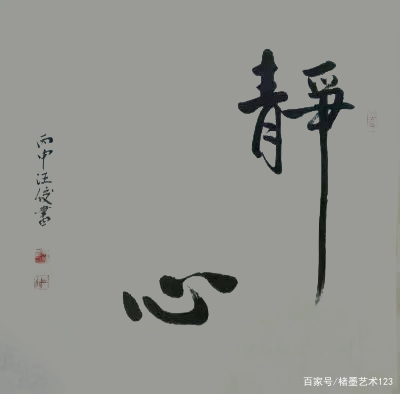 靜
心
丙申汪俊書
百家号/楮墨艺术123